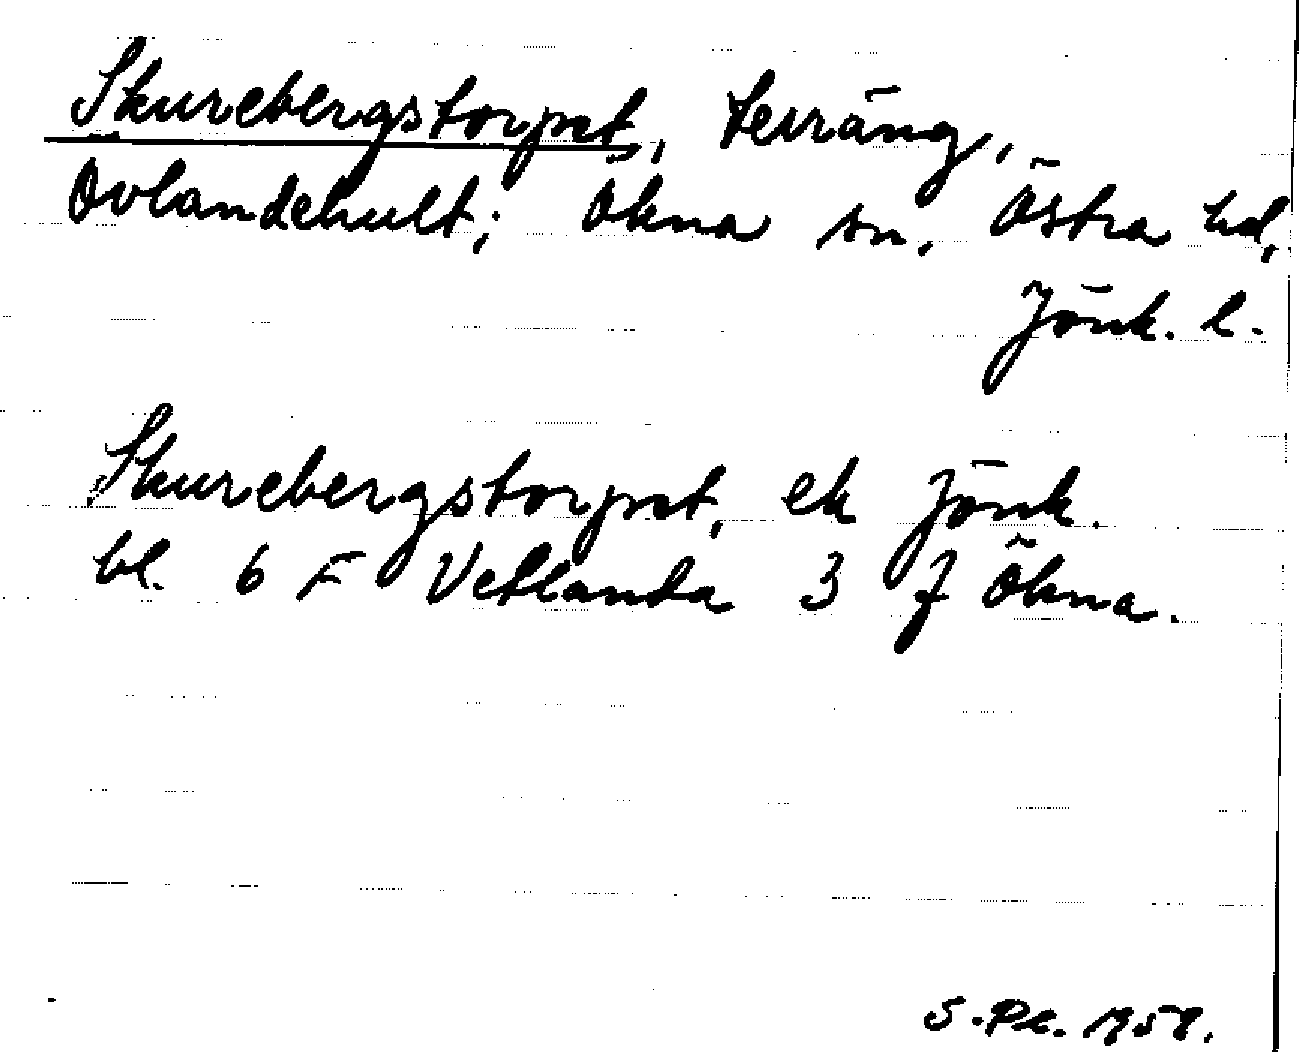 Skurebergstorpet, terräng,
Ovlandehult; Ökna sn, Östra hd,
Jönk. l.
Skurebergstorpet, ek Jönk.
bl. 6 F Vetlanda 3 f Ökna.
S.Pl. 1958.